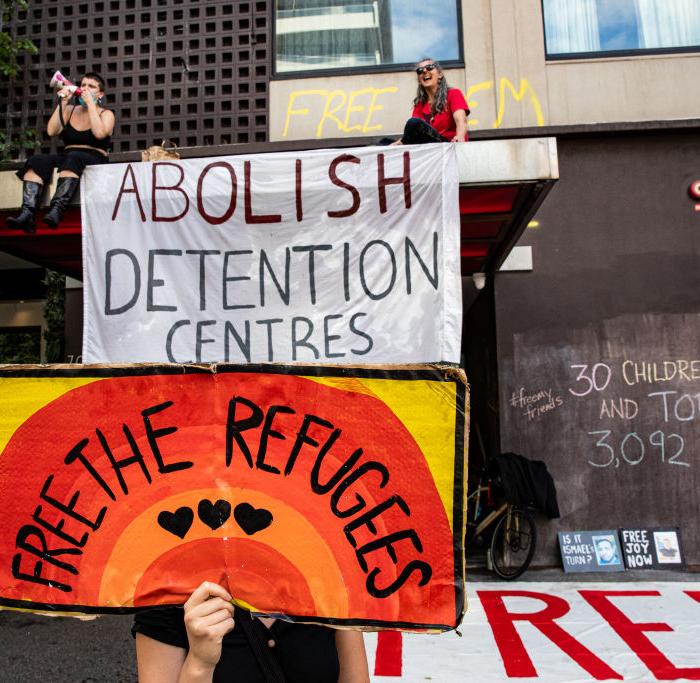 FREE
ABOLISH
DETENTION
CENTRES
FREE THE REFUGEES
#freemy
friends
30 CHILDRE
AND TO
3,092
IS IT
ISMAEL'S
TURN?
FREE
JOY
NOW
RE